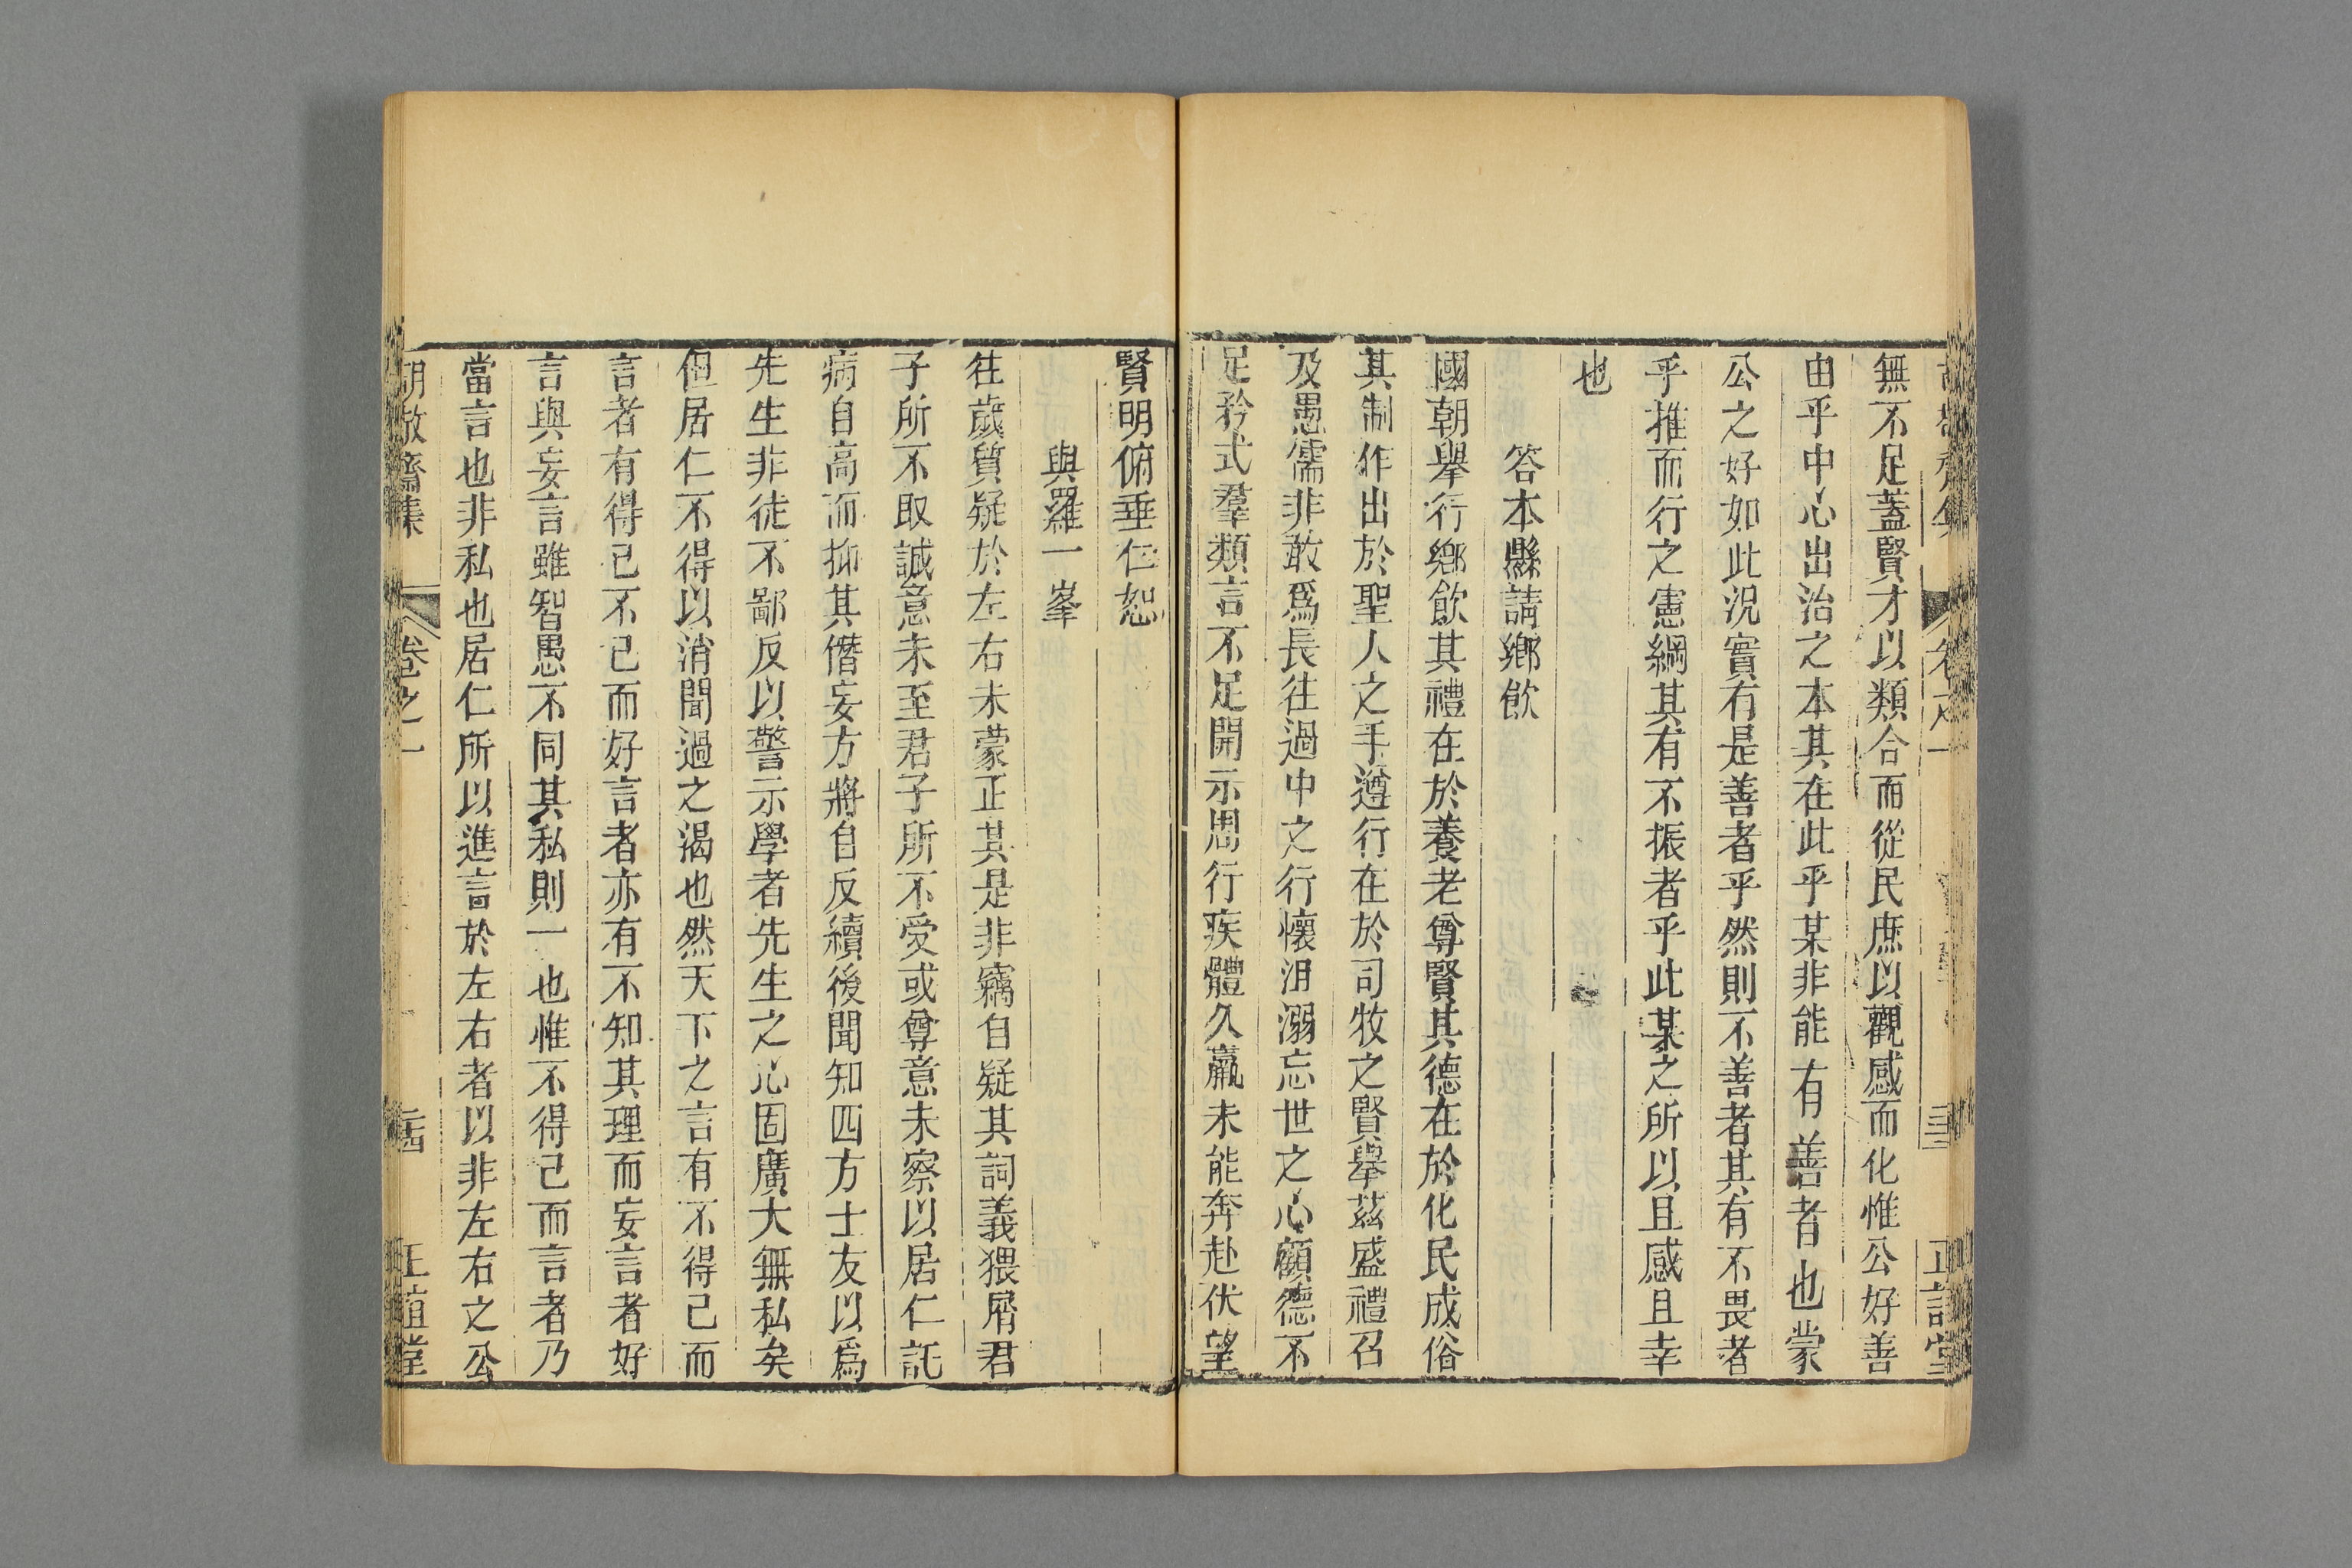 無不足蓋賢才以類合而從民庶以觀感而化惟公好善
由乎中心出治之本其在此乎某非能有善者也蒙
公之好如此況實有是善者乎然則不善者其有不畏者
乎推而行之憲綱其有不振者乎此某之所以且感且幸
也
答本縣請鄉飲
國朝舉行鄉飲其禮在於養老尊賢其德在於化民成俗
其制作出於聖人之手遵行在於司牧之賢舉茲盛禮召
及愚儒非敢爲長往過中之行懷沮溺忘世之心顧德不
足矜式羣類言不足開示思行疾體久羸未能奔赴伏望
賢明俯垂仁恕
與羅一峯
往歲質疑於左右未蒙正其是非竊自疑其詞義猥屑君
子所不取誠意未至君子所不受或尊意未察以居仁託
病自高而抑其僭妄方將自反續後聞知四方士友以爲
先生非徒不鄙反以警示學者先生之心固廣大無私矣
但居仁不得以消聞過之渴也然天下之言有不得已而
言者有得已不已而好言者亦有不知其理而妄言者好
言與妄言雖智愚不同其私則一也惟不得已而言者乃
當言也非私也居仁所以進言於左右者以非左右之公
胡敬齋集 卷之一 正誼堂